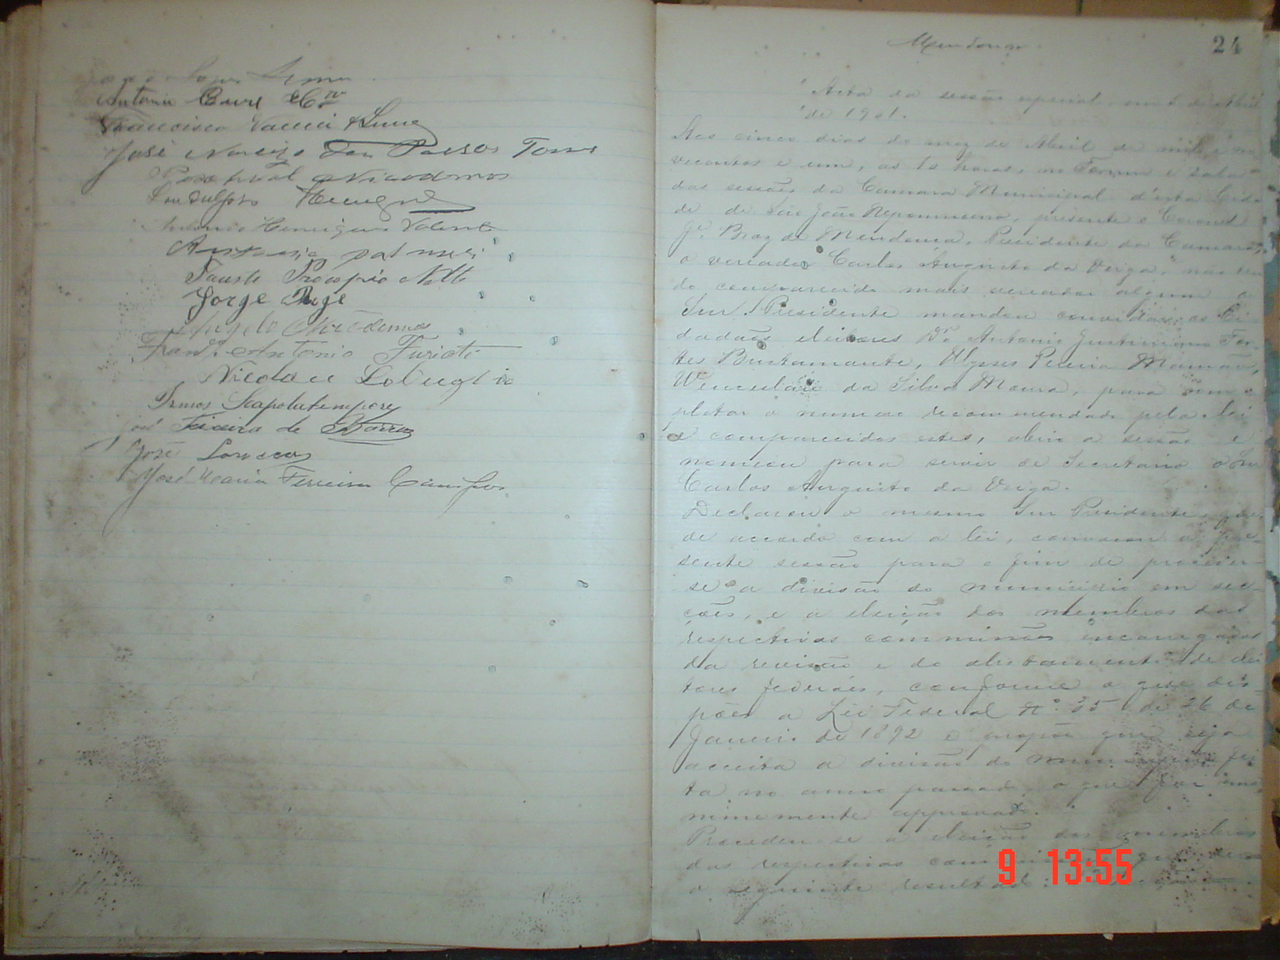 Antonio
Francisco Vanni & Luna
José Narcizo dos Passos Torres
Paschoal Nicodemos
Lindolfo
Antonio Henriques Valente
Antonio
Fausto Procopio Netto
Jorge
Angelo Nicodemos
Franco Antonio Furiati
Nicolau
Irmos Scapolatempore
José Teixeira de Barros
José
José Maria Ferreira Campos
Mendonça
24
Acta da sessão especial em 5 de Abril
de 1901.
Aos cinco dias do mez de Abril de mil e no
vecentos e um, as horas, no Forum e sala
das sessões da Camara Municipal d'esta Cida
de de São João Nepomuceno, presente o Coronel
Je. Braz de Mendonça, Presidente da Camara,
o vereador Carlos Augusto da Veiga, não ten
do comparecido mais vereador algum o
Snr. Presidente mandou convidar os Ci
dadãos eleitores Dr. Antonio Justiniano For
tes Bustamante, Ulysses Pereira
Wenceslau da Silva Moura, para com
pletar o numero recommendado pela lei
e comparecidos estes, abrio a sessão e
nomeou para servir de Secretario o Snr
Carlos Augusto da Veiga.
Declarou o mesmo Snr Presidente, que
de accordo com a lei, convocou a pre
sente sessão para o fim de proceder
se a divisão do municipio em sec
ções, e a eleição dos membros das
respectivas commissões encarregadas
da revisão e do alistamento de elei
tores federaes, conforme o que dis
põe a Lei Federal nº. 35 de 26 de
Janeiro de 1892 e propõe que seja
acceita a divisão do municipio fei
ta no anno passado, o que foi una
nimemente approvado.
Procedeu-se a eleição dos membros
das respectivas commissões que deu
o seguinte resultado:
9 13:55